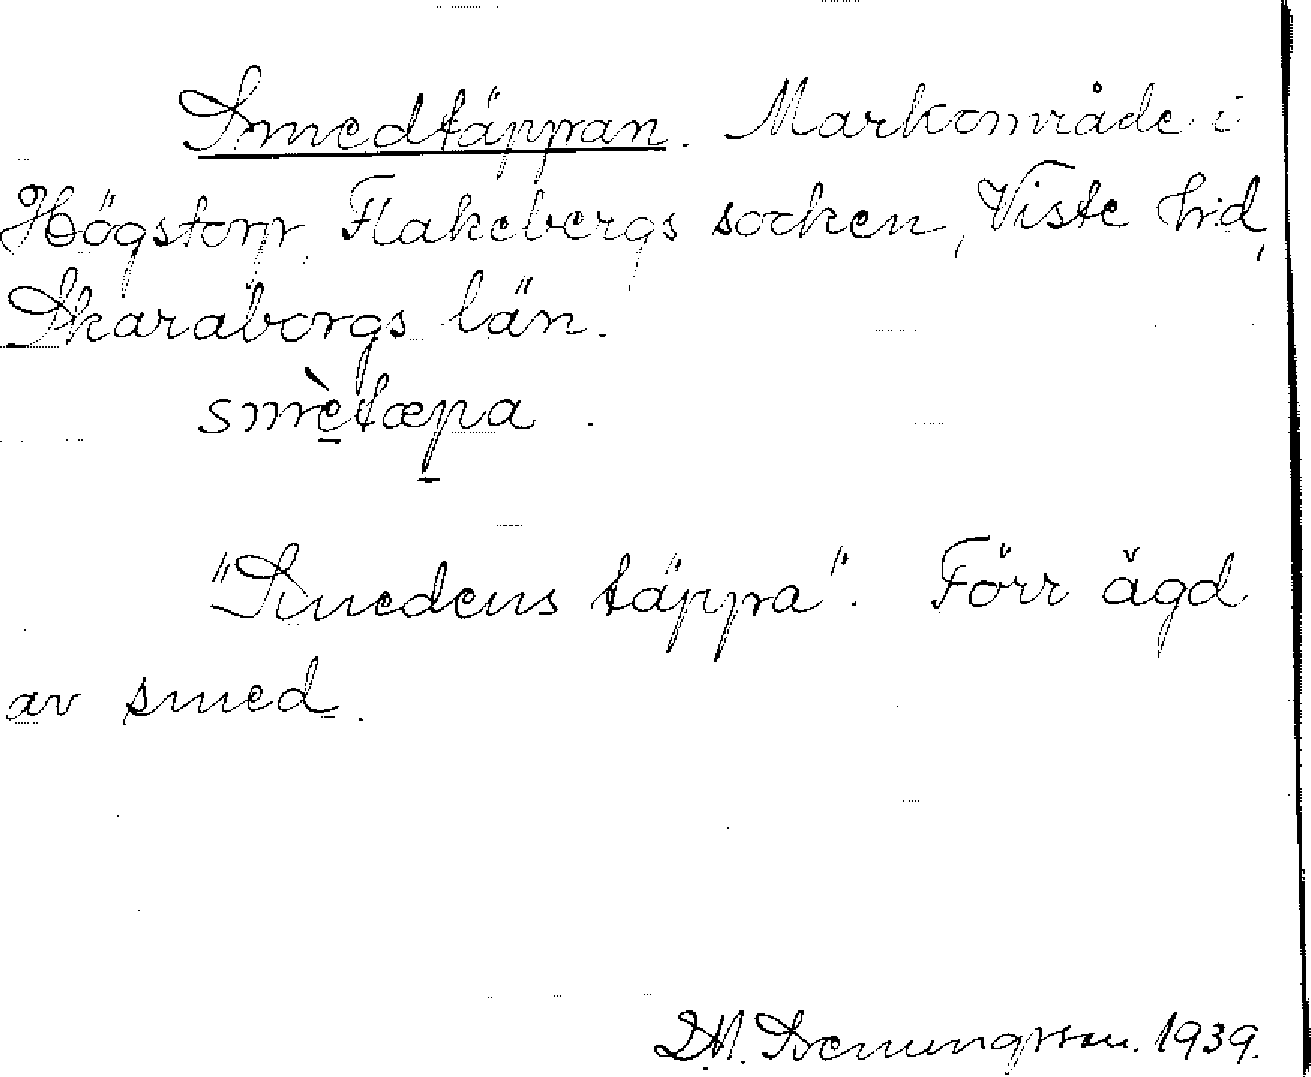 Smedtäppan. Markområde i
Högstorp, Flakebergs socken, Viste hd,
Skaraborgs län.
smètæpa.
"Smedens täppa". Förr ägd
av smed.
D.H. Svenungsson. 1939.